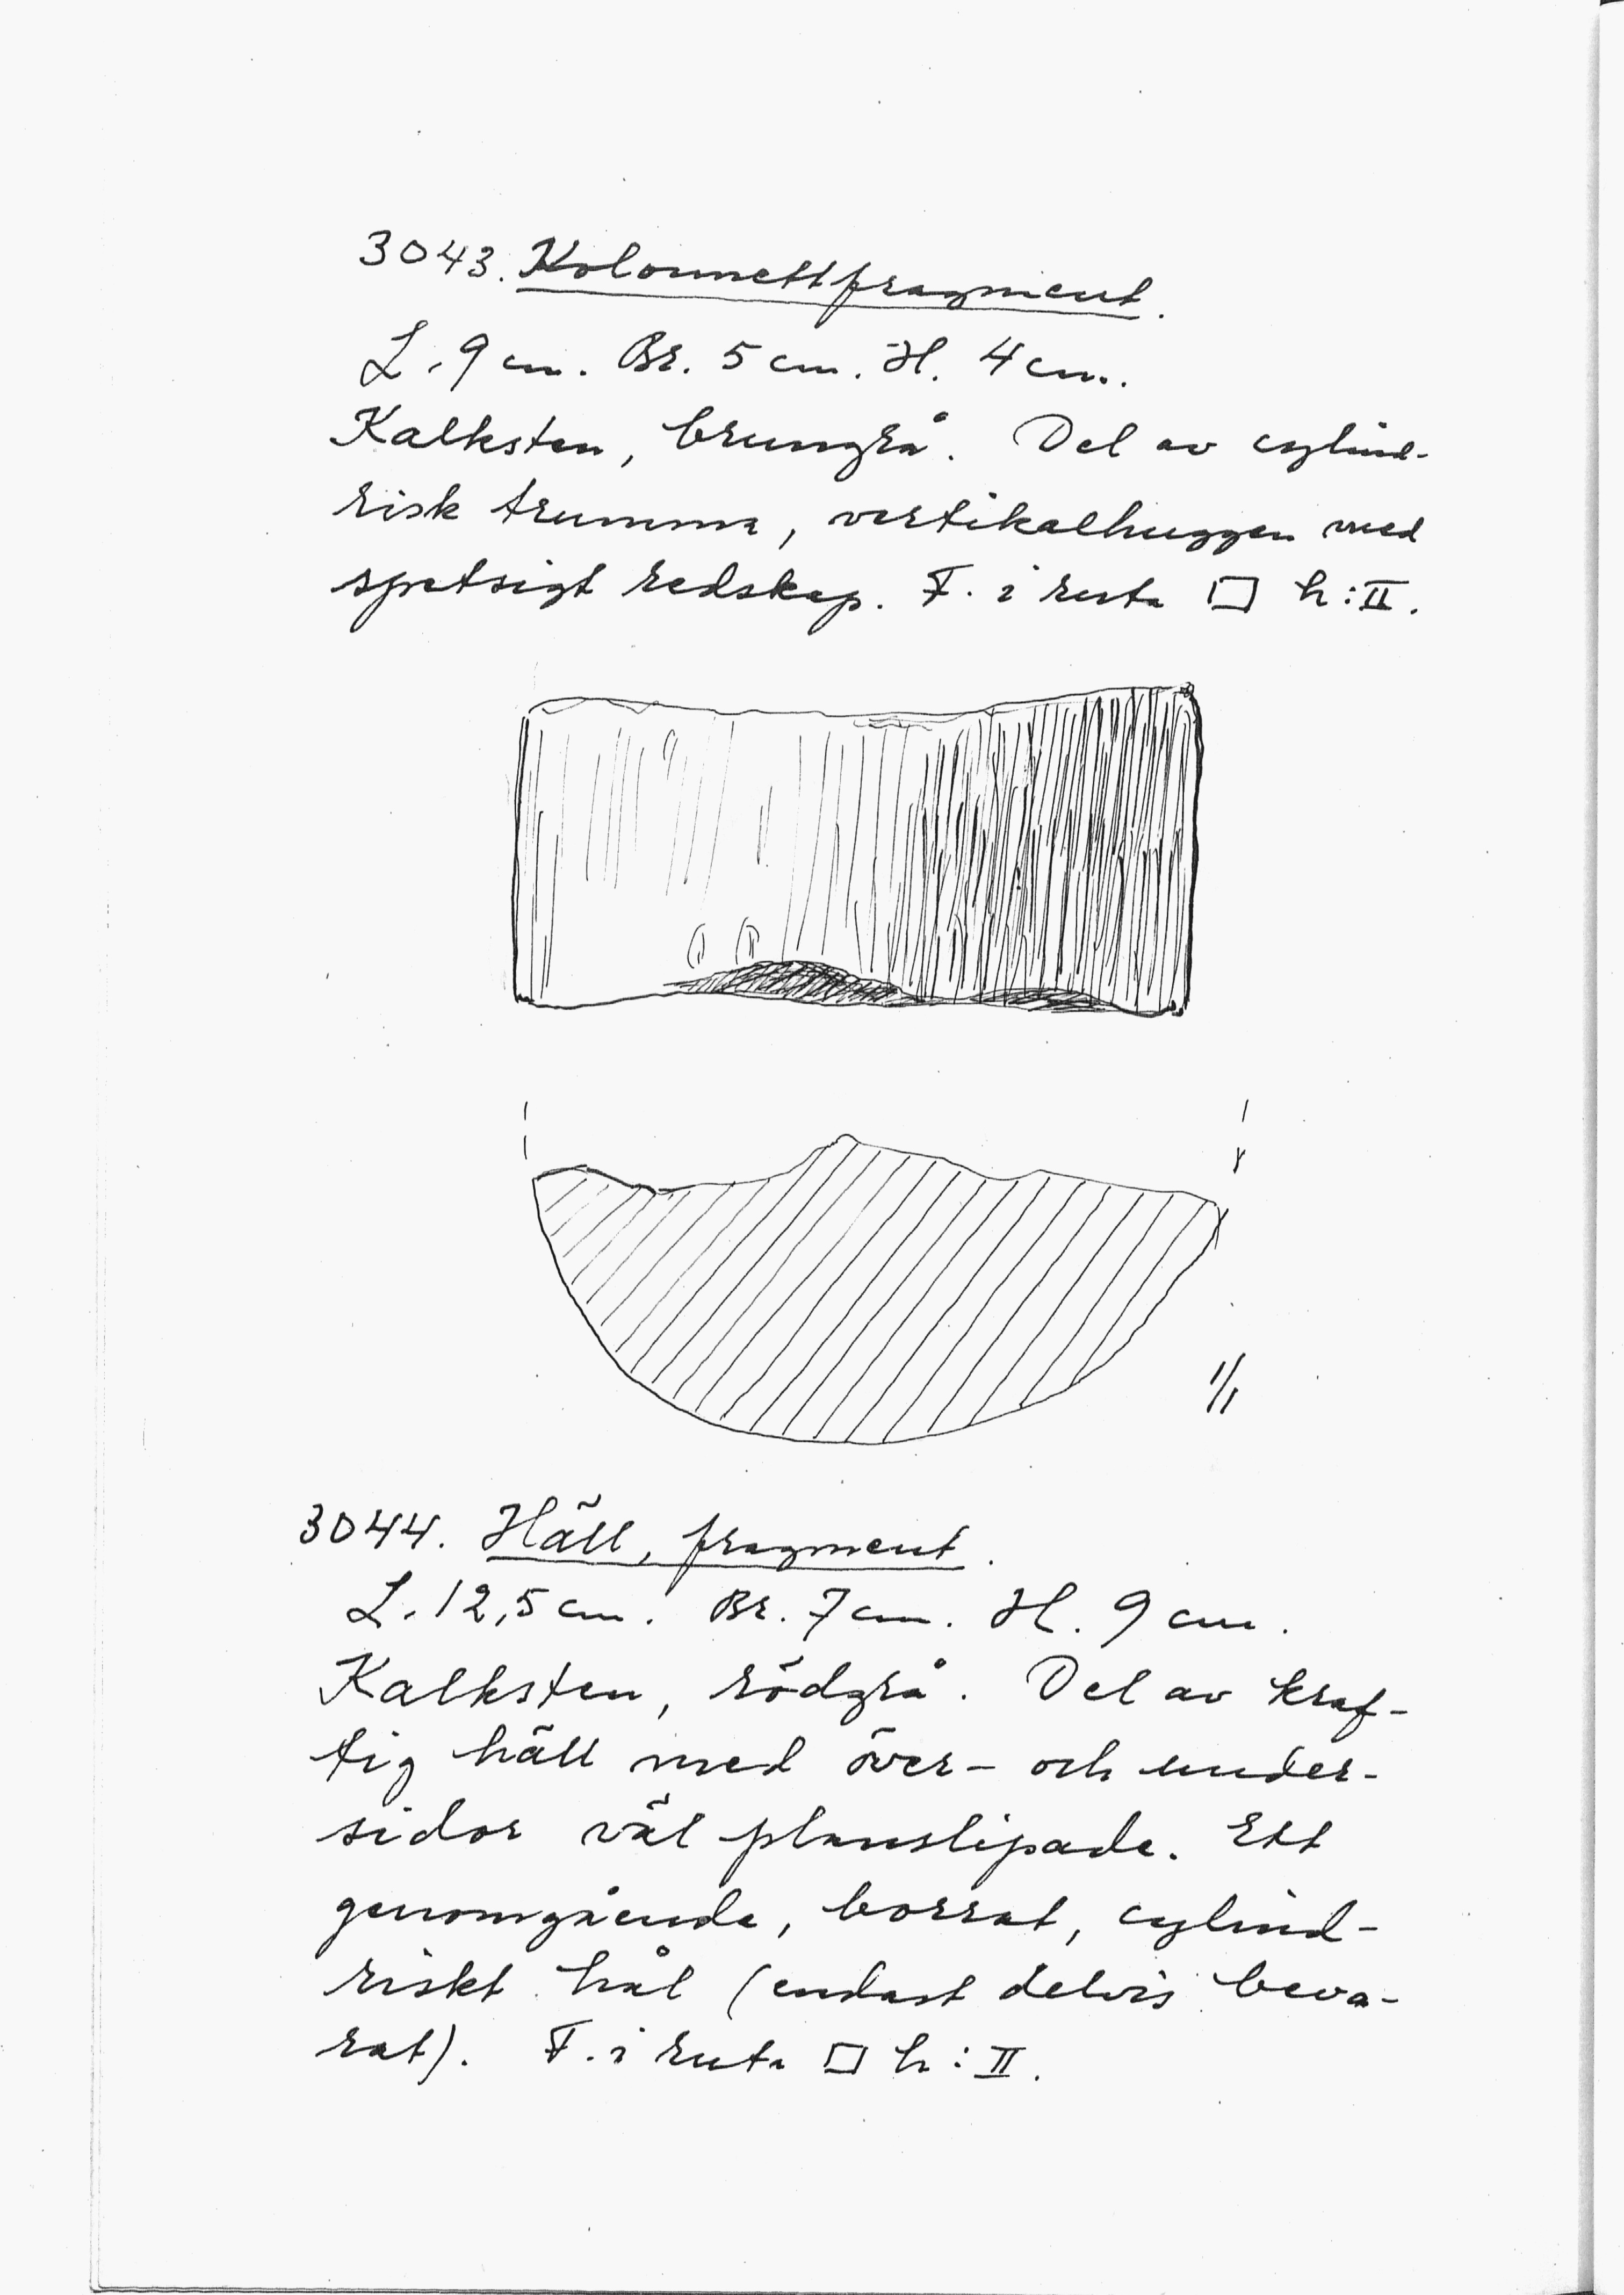 3043. Kolonnettfragment.
L. 9 cm. Br. 5 cm. H. 4 cm.
Kalksten, brungrå. Del av cylind-
risk trumma, vertikalhuggen med
spetsigt redskap. F. i ruta □ h:II.
1/1
3044. Häll, fragment.
L. 12,5 cm. Br. 7 cm. H. 9 cm.
Kalksten, rödgrå. Del av kraf-
tig häll med över- och under-
sidor väl planslipade. Ett
genomgående, borrat, cylind-
riskt hål (endast delvis beva-
rat). F. i ruta □ h:II.